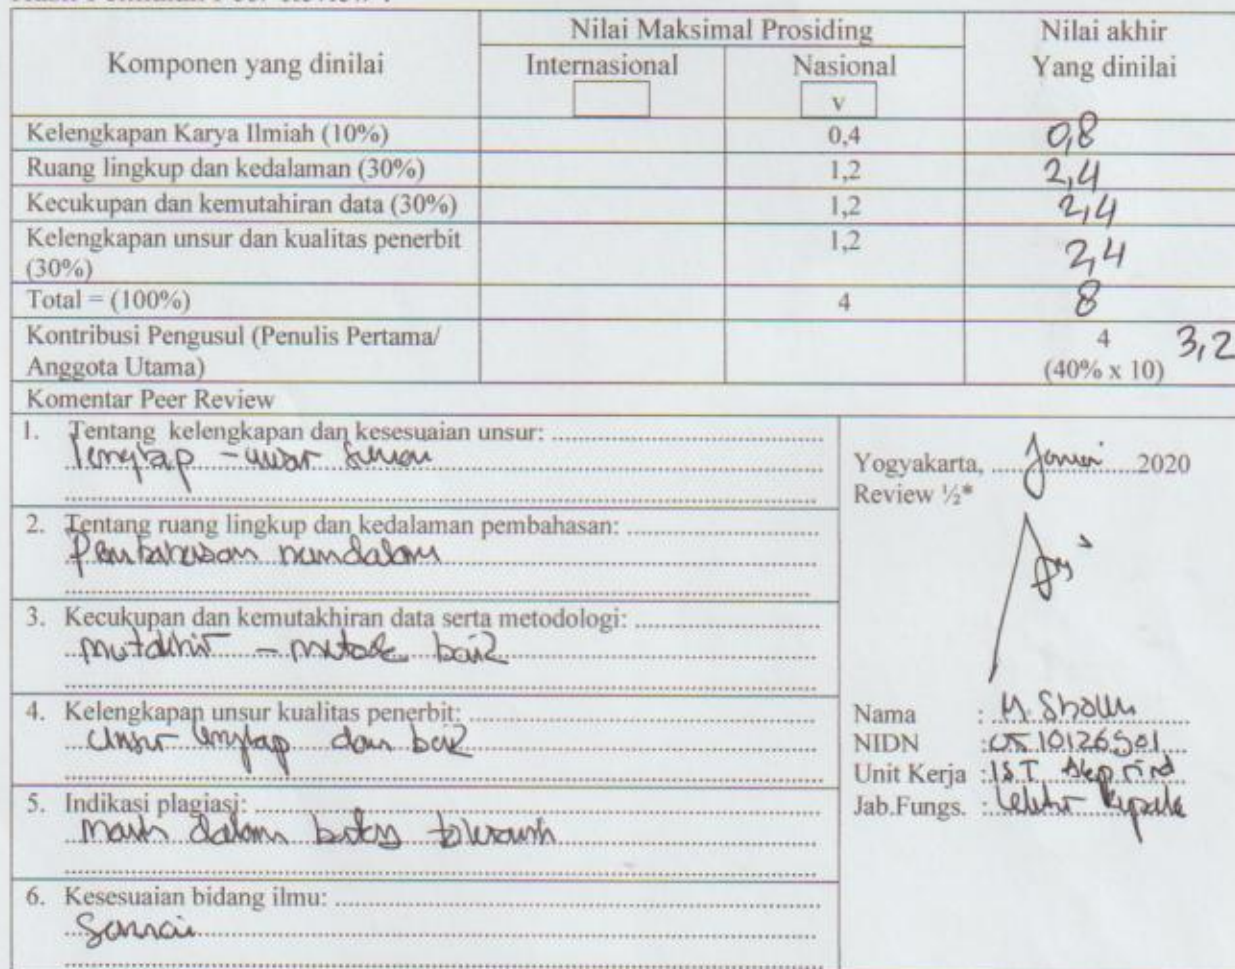 Komponen yang dinilai
Nilai Maksimal Prosiding
Nilai akhir
Yang dinilai
Internasional
Nasional
v
Kelengkapan Karya Ilmiah (10%) 0,4 0,8
Ruang lingkup dan kedalaman (30%) 1,2 2,4
Kecukupan dan kemutahiran data (30%) 1,2 2,4
Kelengkapan unsur dan kualitas penerbit 1,2 2,4
(30%)
Total = (100%) 4 8
Kontribusi Pengusul (Penulis Pertama/ 4 3,2
Anggota Utama) (40% x 10)
Komentar Peer Review
1. Tentang kelengkapan dan kesesuaian unsur:
lengkap -
2. Tentang ruang lingkup dan kedalaman pembahasan:
Pembahasan mendalam
3. Kecukupan dan kemutakhiran data serta metodologi:
mutakhir - metode baik
4. Kelengkapan unsur kualitas penerbit:
Unsur lengkap dan baik
5. Indikasi plagiasi:
Masih dalam batas toleransi
6. Kesesuaian bidang ilmu:
Sesuai
Yogyakarta, 2020
Review ½*
Nama : M. Sholeh
NIDN : 0510126901
Unit Kerja : IST Akprind
Jab.Fungs. : Lektor Kepala